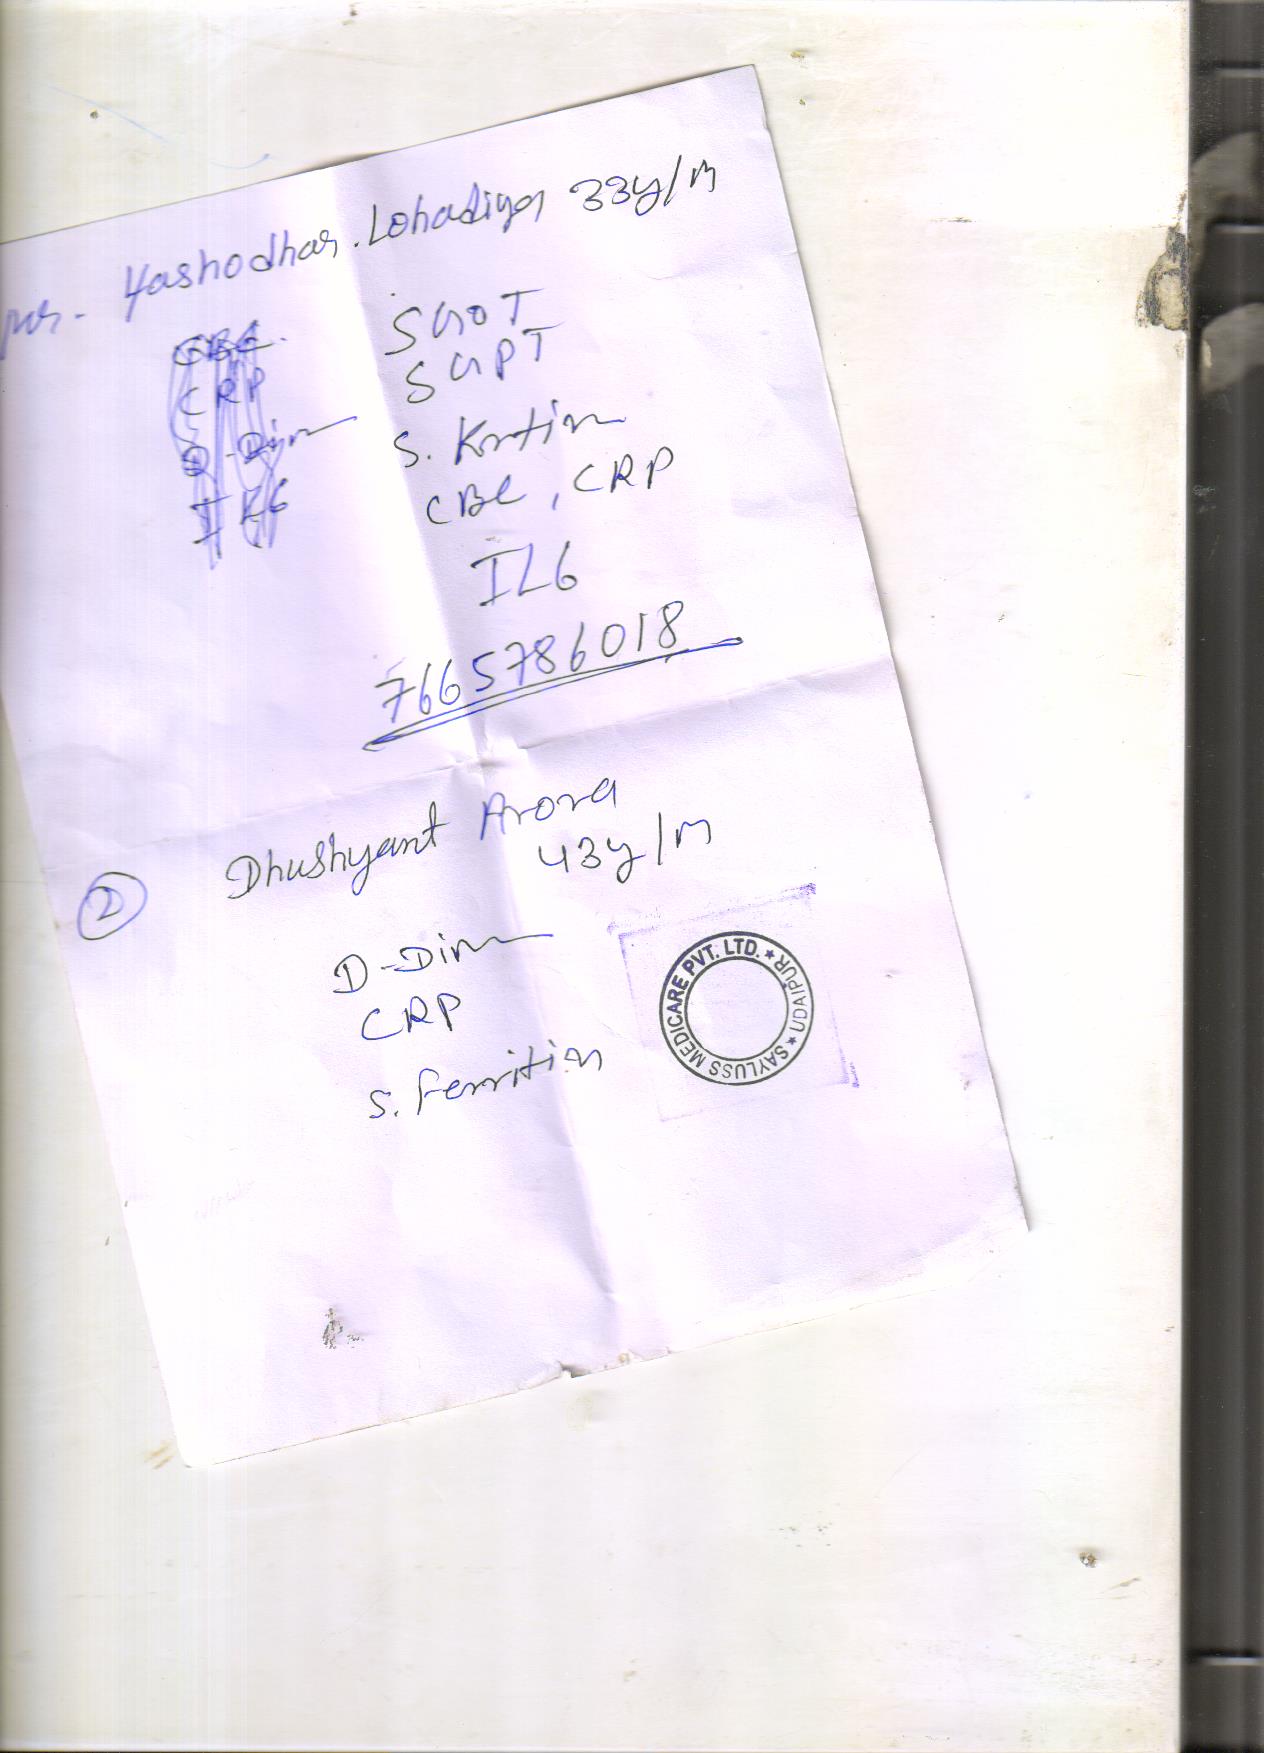 Mr. Yashodhar. Lohadiya 33y/M
CBC.
CRP
D-Dim
IL6
SGOT
SGPT
S.
CBC, CRP
IL6
7665786018
2 Dhushyant Arora
43y/M
D-Dim
CRP
S. Ferritin
SAYLUSS MEDICARE PVT. LTD. ★ UDAIPUR ★